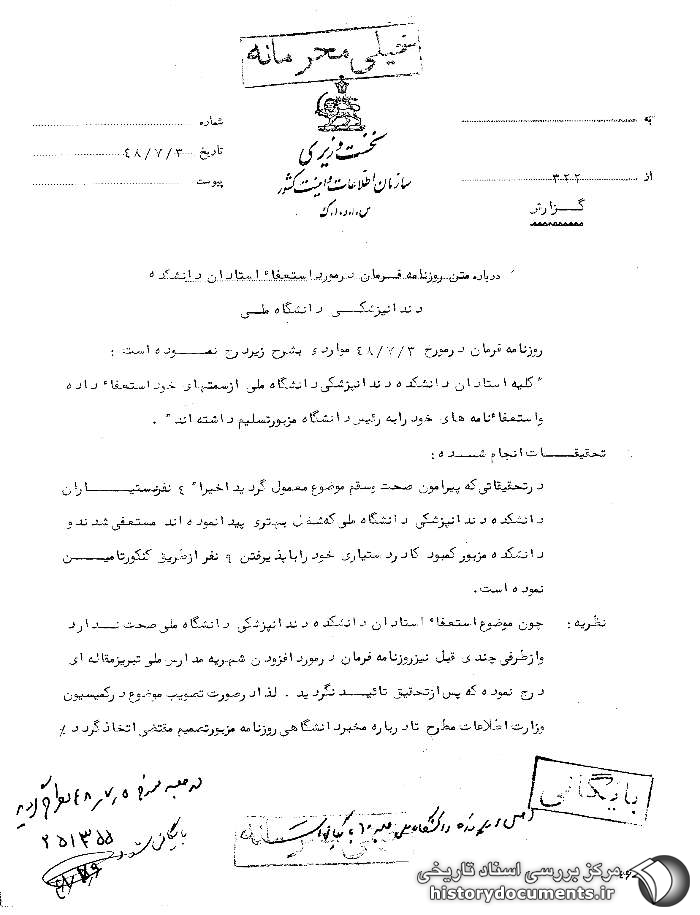 خیلی محرمانه
نخست وزیری
سازمان اطلاعات و امنیت کشور
س.ا.و.ا.ک
به
از ۳۲۲
گزارش
شماره
تاریخ ۴۸/۷/۳
پیوست
درباره متن روزنامه فرمان در مورد استعفاء استادان دانشکده
دندانپزشکی دانشگاه ملی
روزنامه فرمان در مورخ ۴۸/۷/۳ مواردی بشرح زیر درج نموده است :
"کلیه استادان دانشکده دندانپزشکی دانشگاه ملی از سمتهای خود استعفاء داده
و استعفاءنامه های خود را به رئیس دانشگاه مزبور تسلیم داشته اند" .
تحقیقات انجام شده :
در تحقیقاتی که پیرامون صحت وسقم موضوع معمول گردید اخیرا" ۴ نفر دستیاران
دانشکده دندانپزشکی دانشگاه ملی که شغل بهتری پیدا نموده اند مستعفی شدند و
دانشکده مزبور کمبود کادر دستیاری خود را با پذیرفتن ۹ نفر از طریق کنکور تامین
نموده است.
نظریه : چون موضوع استعفاء استادان دانشکده دندانپزشکی دانشگاه ملی صحت ندارد
و از طرفی چندی قبل نیز روزنامه فرمان در مورد افزودن شهریه مدارس ملی تبریز مقاله ای
درج نموده که پس از تحقیق تائید نگردید . لذا در صورت تصویب موضوع در کمیسیون
وزارت اطلاعات مطرح تا درباره مخبر دانشگاهی روزنامه مزبور تصمیم مقتضی اتخاذ گردد ٪
بایگانی
در جلسه مورخ ۴۸/۷/۵ مطرح گردید
بایگانی شود
۲۵۱۳۵۵
خیلی محرمانه
مرکز بررسی اسناد تاریخی
historydocuments.ir